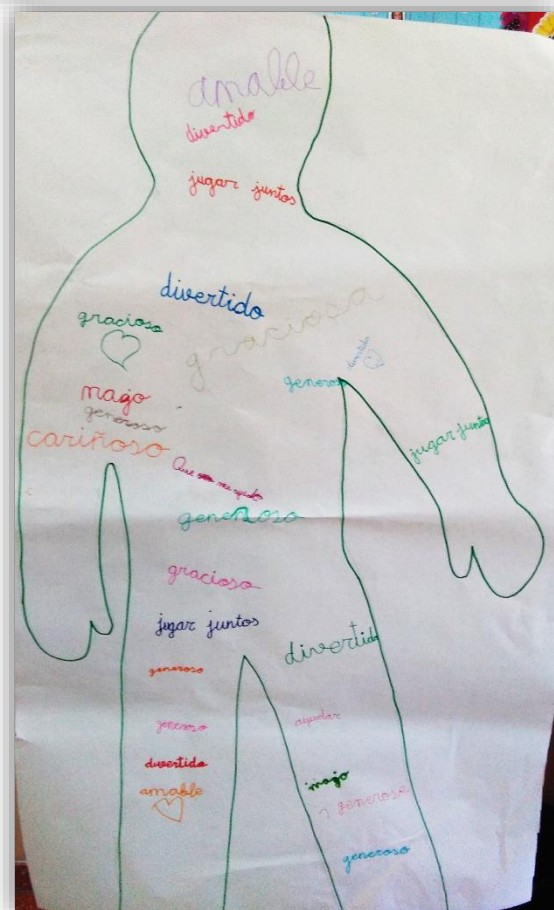 amable
divertido
jugar juntos
divertido
graciosa
gracioso
divertido
generoso
mago
generoso
cariñoso
jugar juntos
Que me ayuda
generoso
gracioso
jugar juntos
divertido
generoso
generoso
ayudar
divertido
majo
amable
generosa
generoso